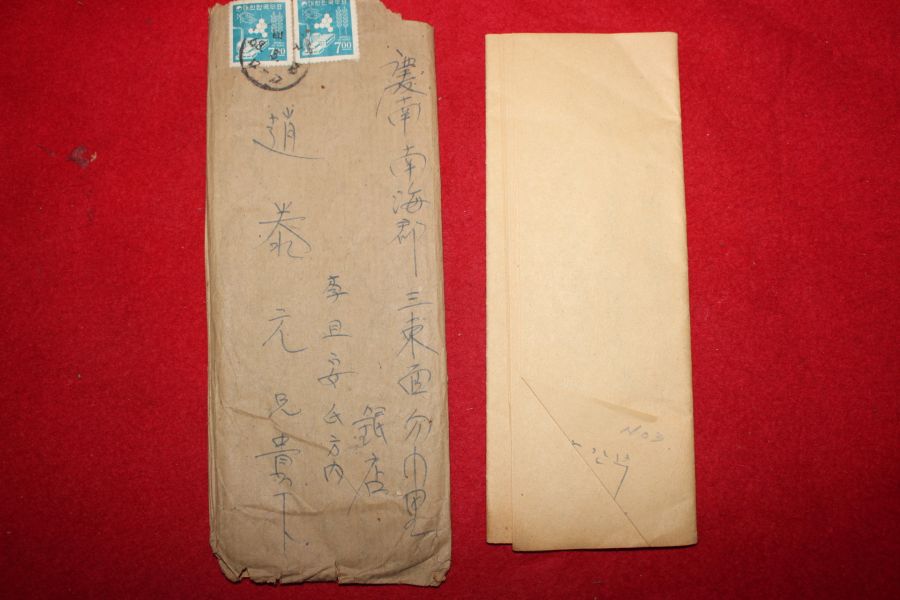 대한민국우표
7.00
대한민국우표
7.00
慶南 南海郡 三東面 勿巾里
銀店
李且 氏方內
趙泰元兄貴下
NO3